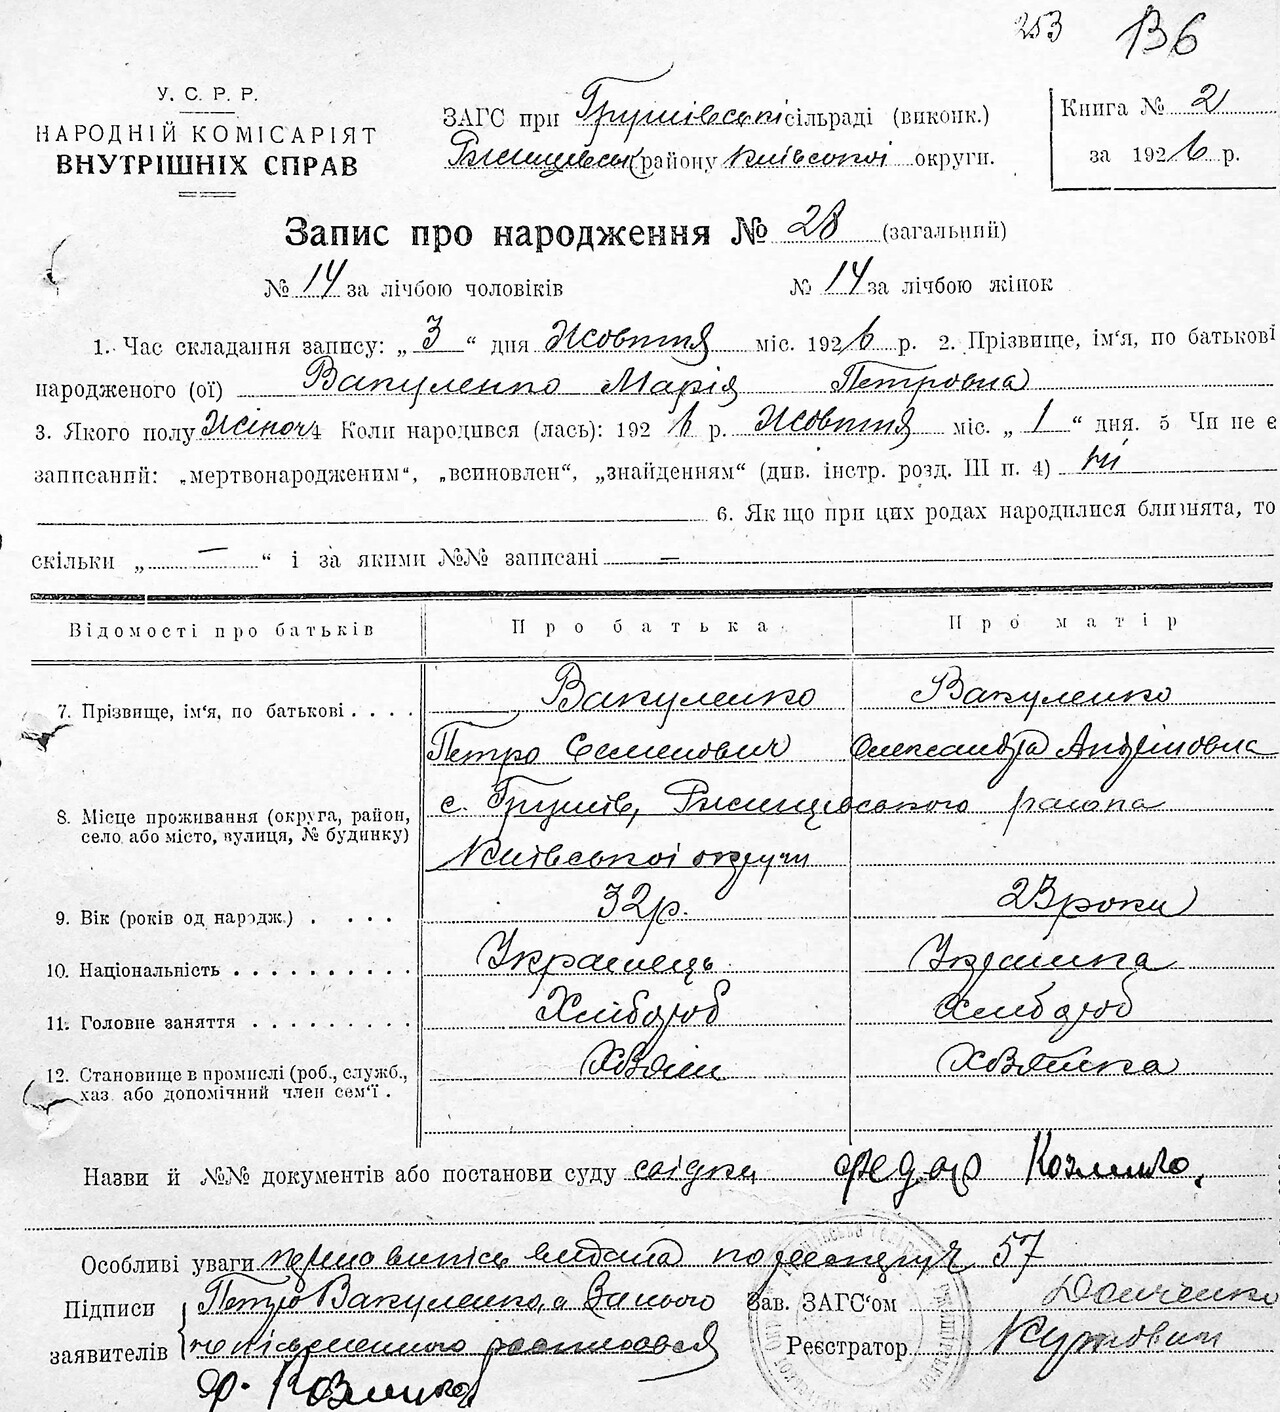 253 136
У. С. Р. Р.
НАРОДНІЙ КОМІСАРІЯТ
ВНУТРІШНІХ СПРАВ
ЗАГС при Грушівські сільраді (виконк.)
Ржищевськ району Київської округи.
Книга № 2
за 1926 р.
Запис про народження № 28 (загальний)
№ 14 за лічбою чоловіків № 14 за лічбою жінок
1. Час складання запису: „ 3 “ дня Жовтня міс. 1926 р. 2. Прізвище, ім'я, по батькові
народженого (ої) Вакуленко Марія Петровна
3. Якого полу Жіноч. 4 Коли народився (лась): 192 6 р. Жовтня міс. „ 1 “ дня. 5 Чи не є
записаний: „мертвонародженим“, „всиновлен“, „знайденням“ (див. інстр. розд. III п. 4) ні
6. Якщо при цих родах народилися близнята, то
скільки „ — “ і за якими №№ записані =
Відомості про батьків Про батька Про матір
7. Прізвище, ім'я, по батькові . . . . Вакуленко Вакуленко
Петро Семенович Олександра Андріївна
8. Місце проживання (округа, район, с. Грушів, Ржищевського района
село або місто, вулиця, № будинку) Київської округи
9. Вік (років од народж.) . . . . 32 р. 23 роки
10. Національність . . . . . . . . . . . Українець Українка
11. Головне заняття . . . . . . . . . Хлібороб Хлібороб
12. Становище в промислі (роб., служб., Хазяїн Хазяйка
хаз. або допомічний член сем'ї .
Назви й №№ документів або постанови суду свідки Федор Козленко.
Особливі уваги перша випись видана по реєстру № 57
Підписи Петро Вакуленко, а за нього Зав. ЗАГС'ом Донченко
заявителів неписьменного расписовся Реєстратор
Ф. Козленко